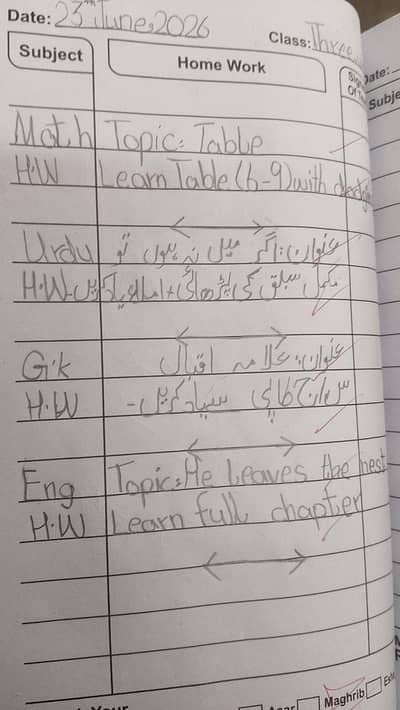 Date: 23rd June, 2026
Class: Three
Subject
Home Work
Math Topic: Table
H.W Learn Table (6-9) with
Urdu عنوان: اگر میں نہ ہوں تو
H.W مکمل سبق کی پڑھائی + املا یاد کریں۔
G.k عنوان: علامہ اقبال
H.W کاپی یاد کریں۔
Eng Topic: He leaves the nest
H.W Learn full chapter
Date:
Maghrib